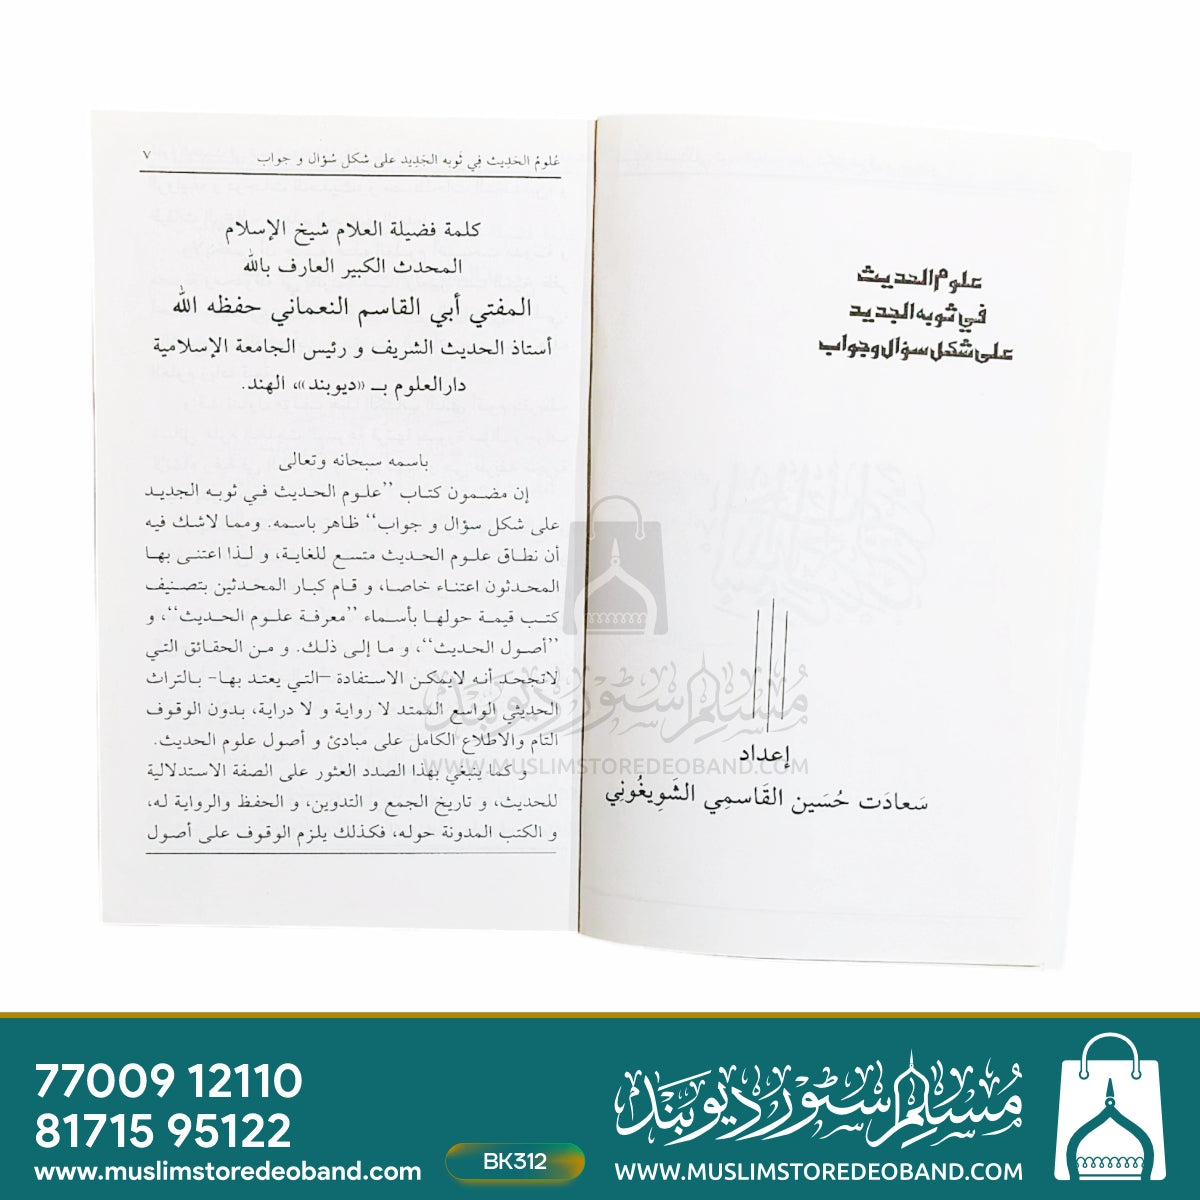 علوم الحديث
في ثوبه الجديد
على شكل سؤال وجواب
إعداد
سَعادَت حُسَين القَاسمِي الشَوِيغُوني
عُلومُ الحَدِيث فِي ثَوبه الجَدِيد على شكل سُؤال و جواب ٧
كلمة فضيلة العلام شيخ الإسلام
المحدث الكبير العارف بالله
المفتي أبي القاسم النعماني حفظه الله
أستاذ الحديث الشريف و رئيس الجامعة الإسلامية
دارالعلوم بـ «ديوبند»، الهند.
باسمه سبحانه وتعالى
إن مضمون كتاب ‘‘علوم الحديث في ثوبه الجديد
على شكل سؤال و جواب’’ ظاهر باسمه. ومما لاشك فيه
أن نطاق علوم الحديث متسع للغاية، و لذا اعتنى بها
المحدثون اعتناء خاصا، و قام كبار المحدثين بتصنيف
كتب قيمة حولها بأسماء ‘‘معرفة علوم الحديث’’، و
‘‘أصول الحديث’’، و ما إلى ذلك. و من الحقائق التي
لاتجحد أنه لايمكن الاستفادة –التي يعتد بها- بالتراث
الحديثي الواسع الممتد لا رواية و لا دراية، بدون الوقوف
التام والاطلاع الكامل على مبادئ و أصول علوم الحديث.
و كما ينبغي بهذا الصدد العثور على الصفة الاستدلالية
للحديث، و تاريخ الجمع و التدوين، و الحفظ والرواية له،
و الكتب المدونة حوله، فكذلك يلزم الوقوف على أصول
مسلم سٹور دیوبند
WWW.MUSLIMSTOREDEOBAND.COM
77009 12110
81715 95122
www.muslimstoredeoband.com
BK312
مسلم سٹور دیوبند
WWW.MUSLIMSTOREDEOBAND.COM